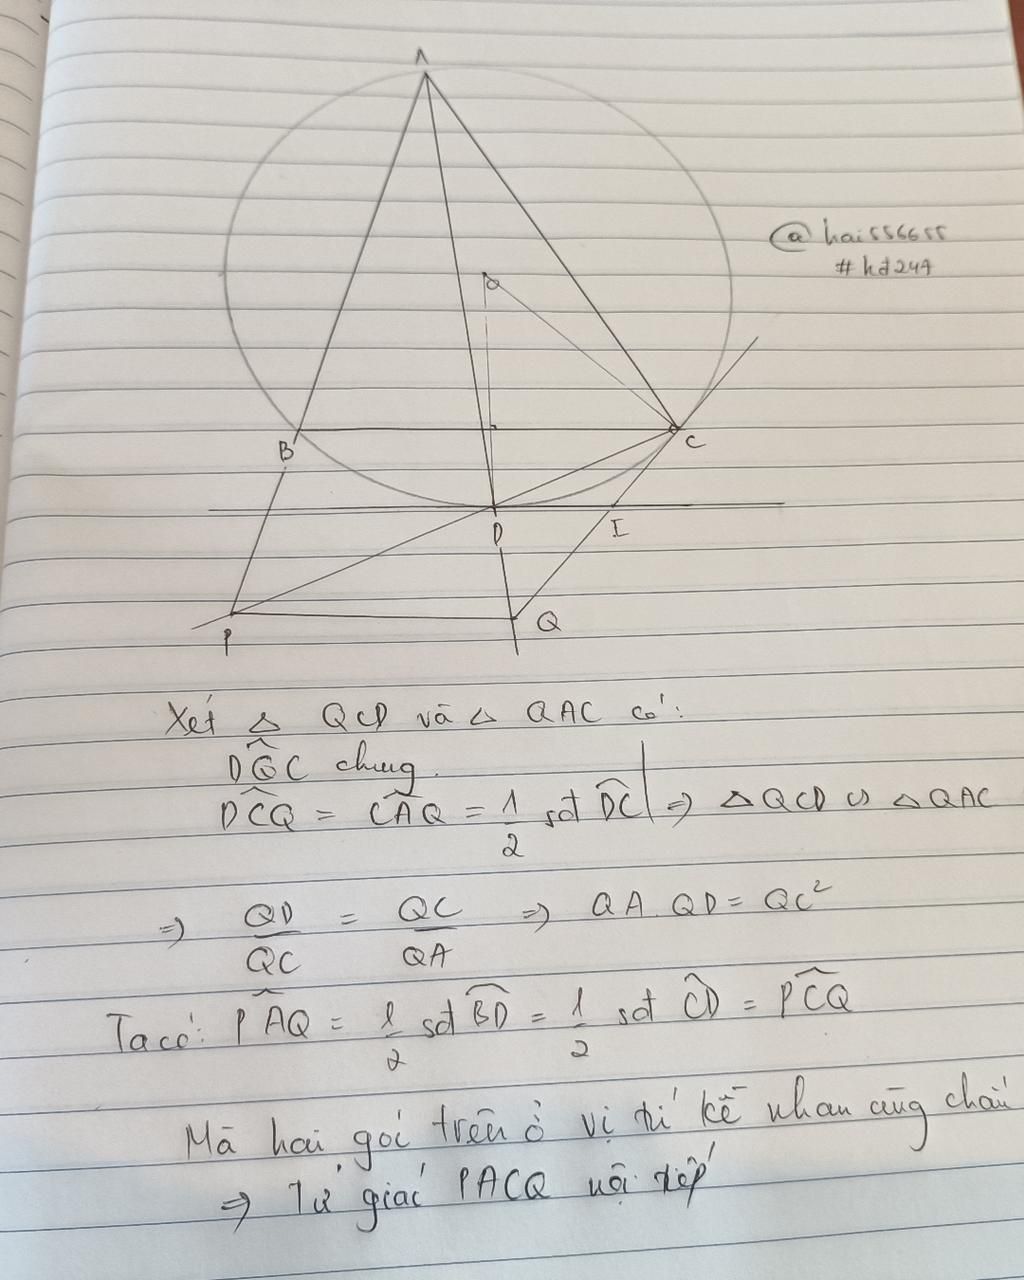 A
O
@hai556655
#hd247
B
C
D
I
P
Q
Xét △ QCD và △ QAC có:
DQ̂C chung.
DĈQ = CÂQ = 1/2 sđ D͡C | ⇒ △QCD ∽ △QAC
⇒ QD/QC = QC/QA ⇒ QA.QD = QC²
Ta có: PÂQ = 1/2 sđ B͡D = 1/2 sđ C͡D = PĈQ
Mà hai góc trên ở vị trí kề nhau cùng chắn
⇒ Tứ giác PACQ nội tiếp